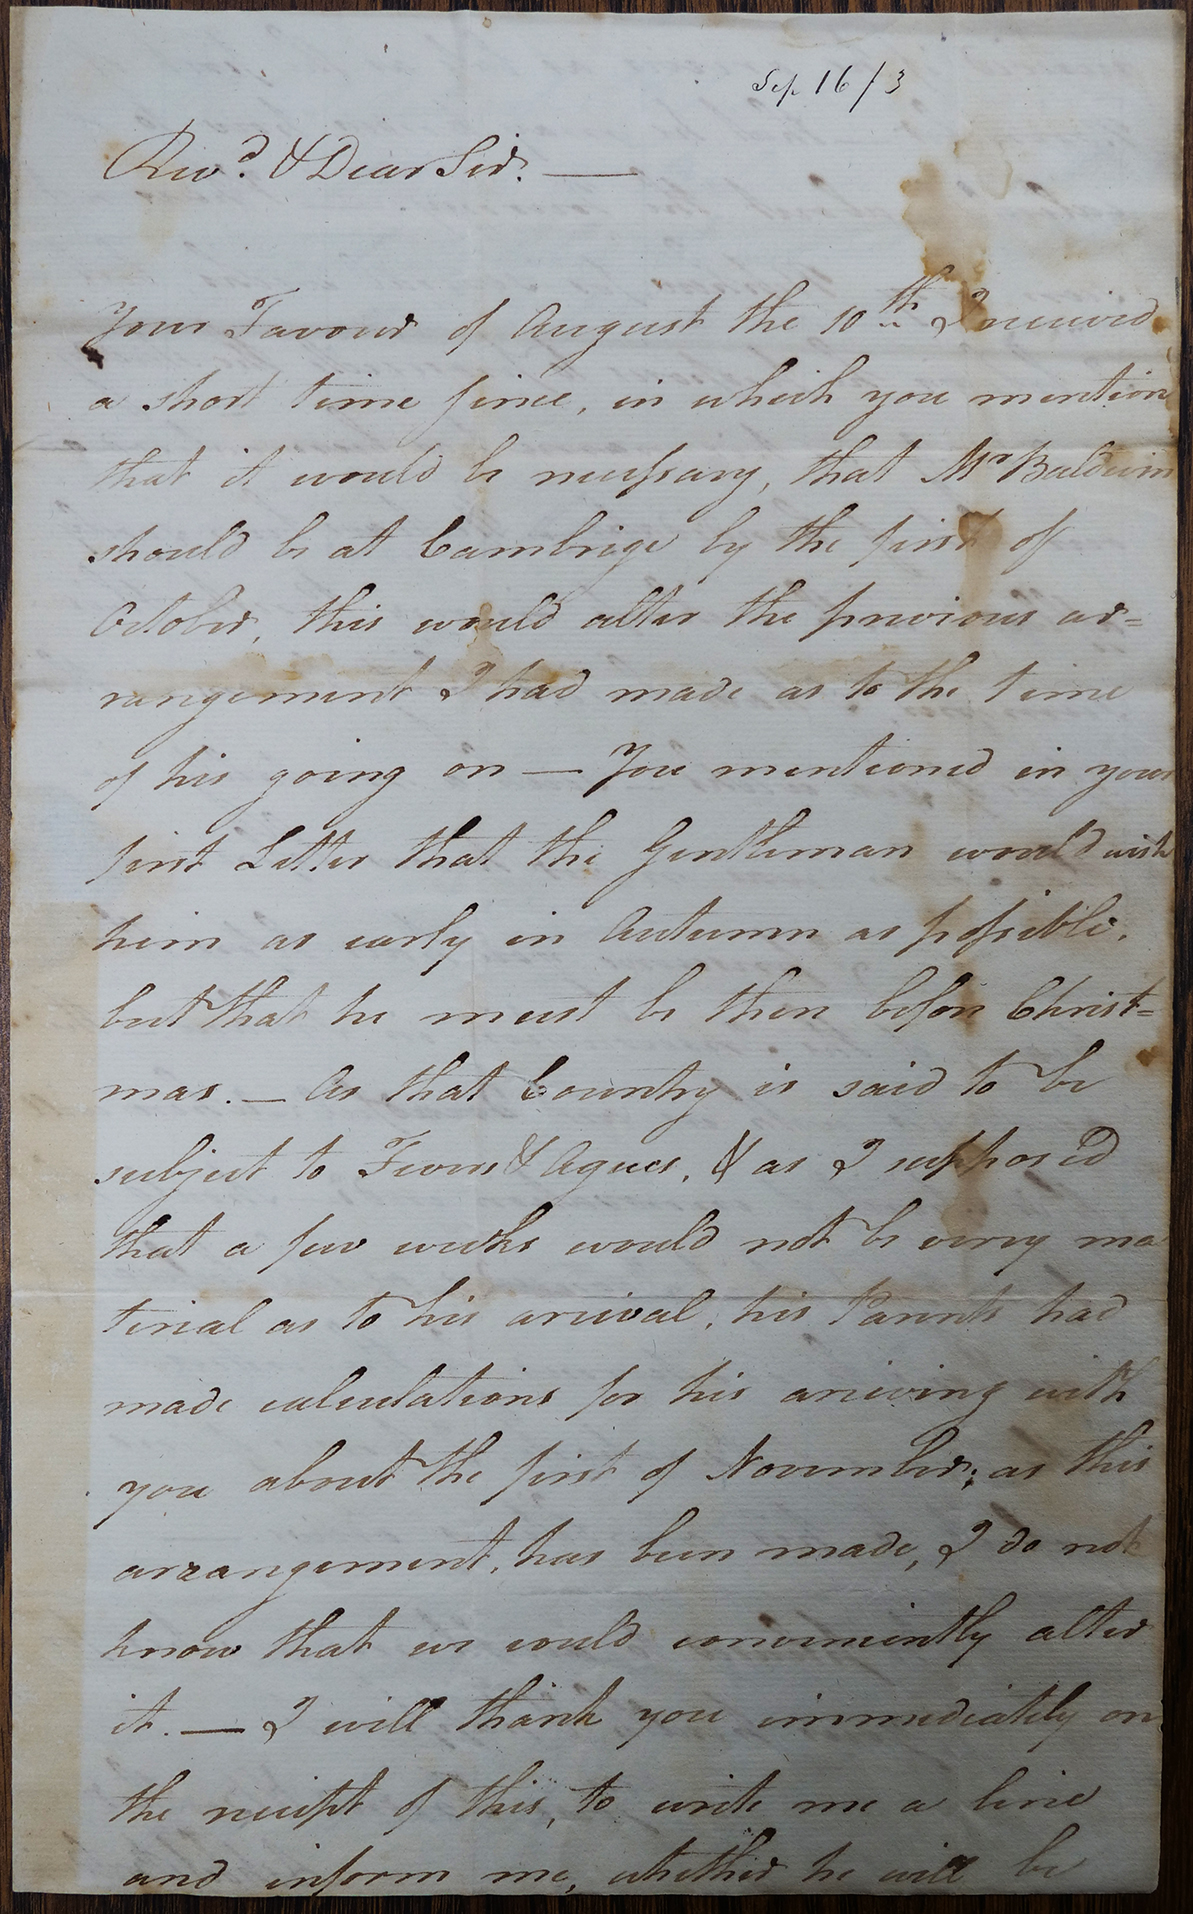 Sep 16/3
Revd. & Dear Sir. —
Your Favour of August the 10th I received
a short time since, in which you mention
that it would be necessary, that Mr Baldwin
should be at Cambrige by the first of
October, this would alter the previous ar=
rangement I had made as to the time
of his going on — You mentioned in your
first Letter that the Gentleman would wish
him as early in Autumn as possible,
but that he must be then before Christ=
mas. — As that Country is said to be
subject to Fevers & Agues, & as I supposed
that a few weeks would not be very ma
terial as to his arival, his Parents had
made calculations for his ariving with
you about the first of November; as this
arrangement, has been made, I do not
know that we could conveniently alter
it. — I will thank you immediately on
the receipt of this, to write me a line
and inform me, whether he will be